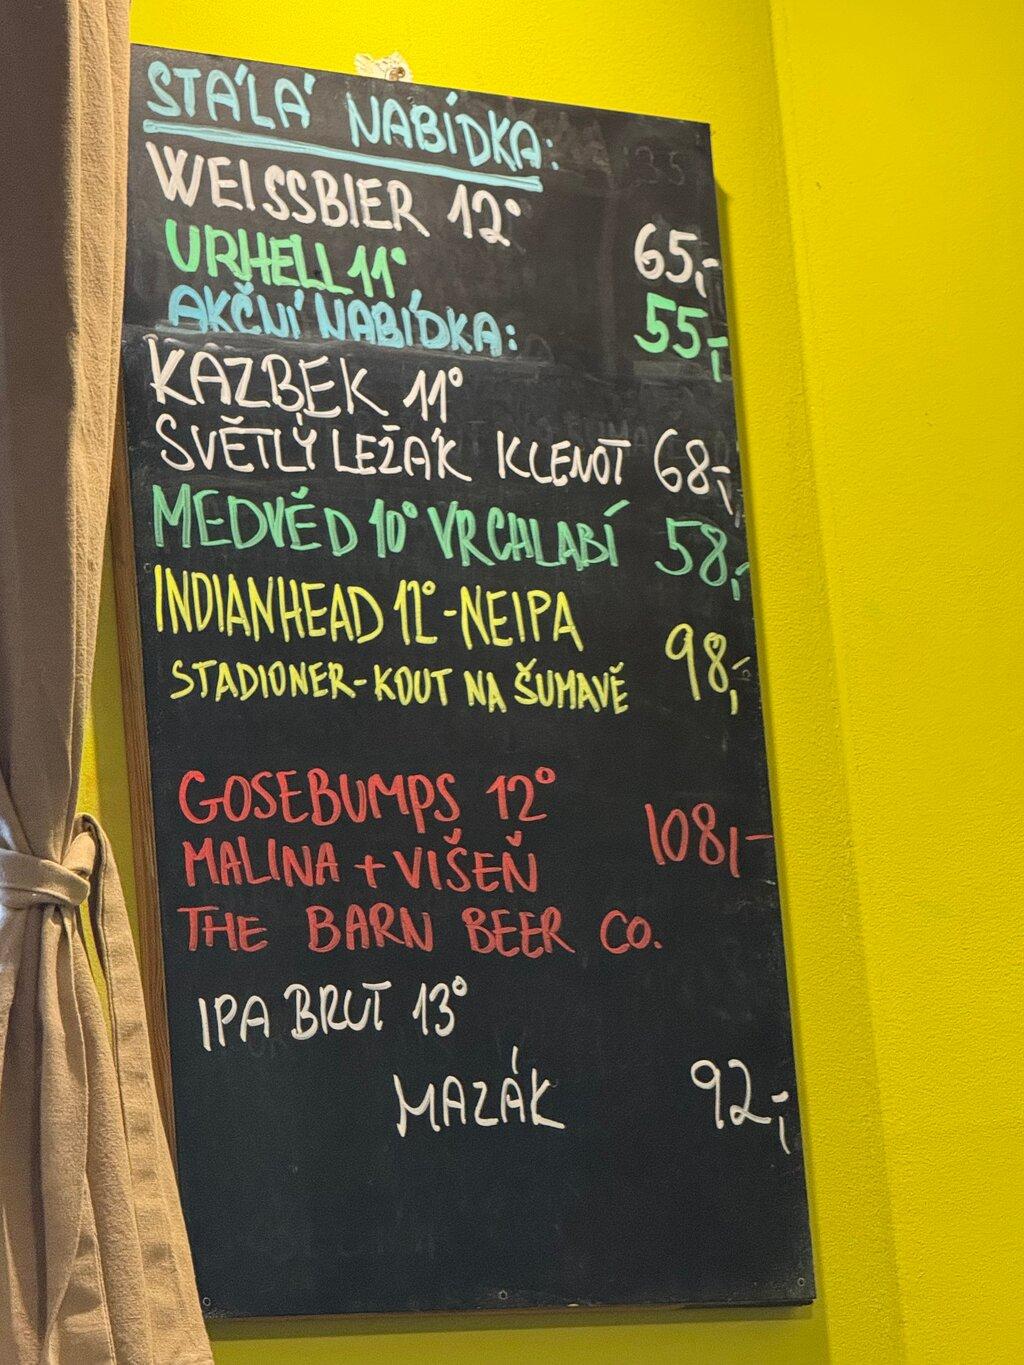 STÁLÁ NABÍDKA:
WEISSBIER 12° 65,-
URHELL 11° 55,-
AKČNÍ NABÍDKA:
KAZBEK 11°
SVĚTLÝ LEŽÁK KLENOT 68,-
MEDVĚD 10° VRCHLABÍ 58,-
INDIANHEAD 12°-NEIPA 98,-
STADIONER-KOUT NA ŠUMAVĚ
GOSEBUMPS 12° 108,-
MALINA + VIŠEŇ
THE BARN BEER CO.
IPA BRUT 13°
MAZÁK 92,-